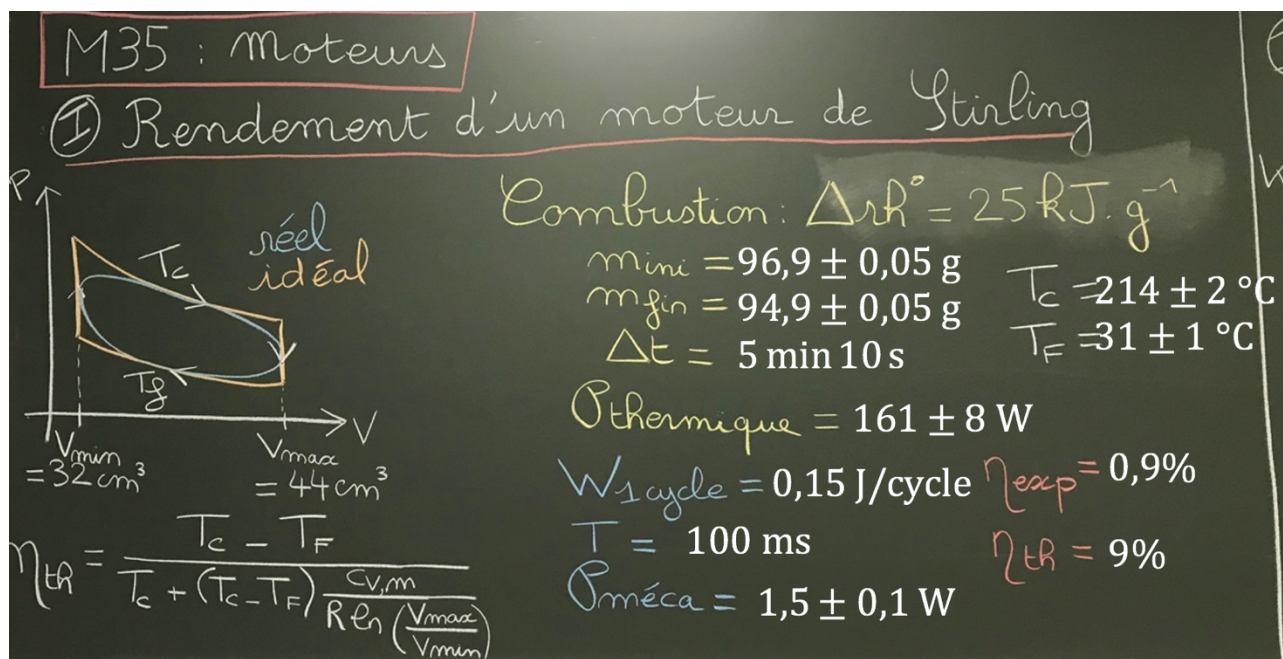 M35 : Moteurs
① Rendement d'un moteur de Stirling
P
réel
idéal
Tc
Tf
V
Vmin
= 32 cm³
Vmax
= 44 cm³
ηth = (Tc - TF) / (Tc + (Tc - TF) Cv,m / (R ln (Vmax / Vmin)))
Combustion : Δrh° = 25 kJ.g⁻¹
mini = 96,9 ± 0,05 g
mfin = 94,9 ± 0,05 g
Δt = 5 min 10 s
Tc = 214 ± 2 °C
TF = 31 ± 1 °C
Pthermique = 161 ± 8 W
W1cycle = 0,15 J/cycle
T = 100 ms
Pméca = 1,5 ± 0,1 W
ηexp = 0,9%
ηth = 9%